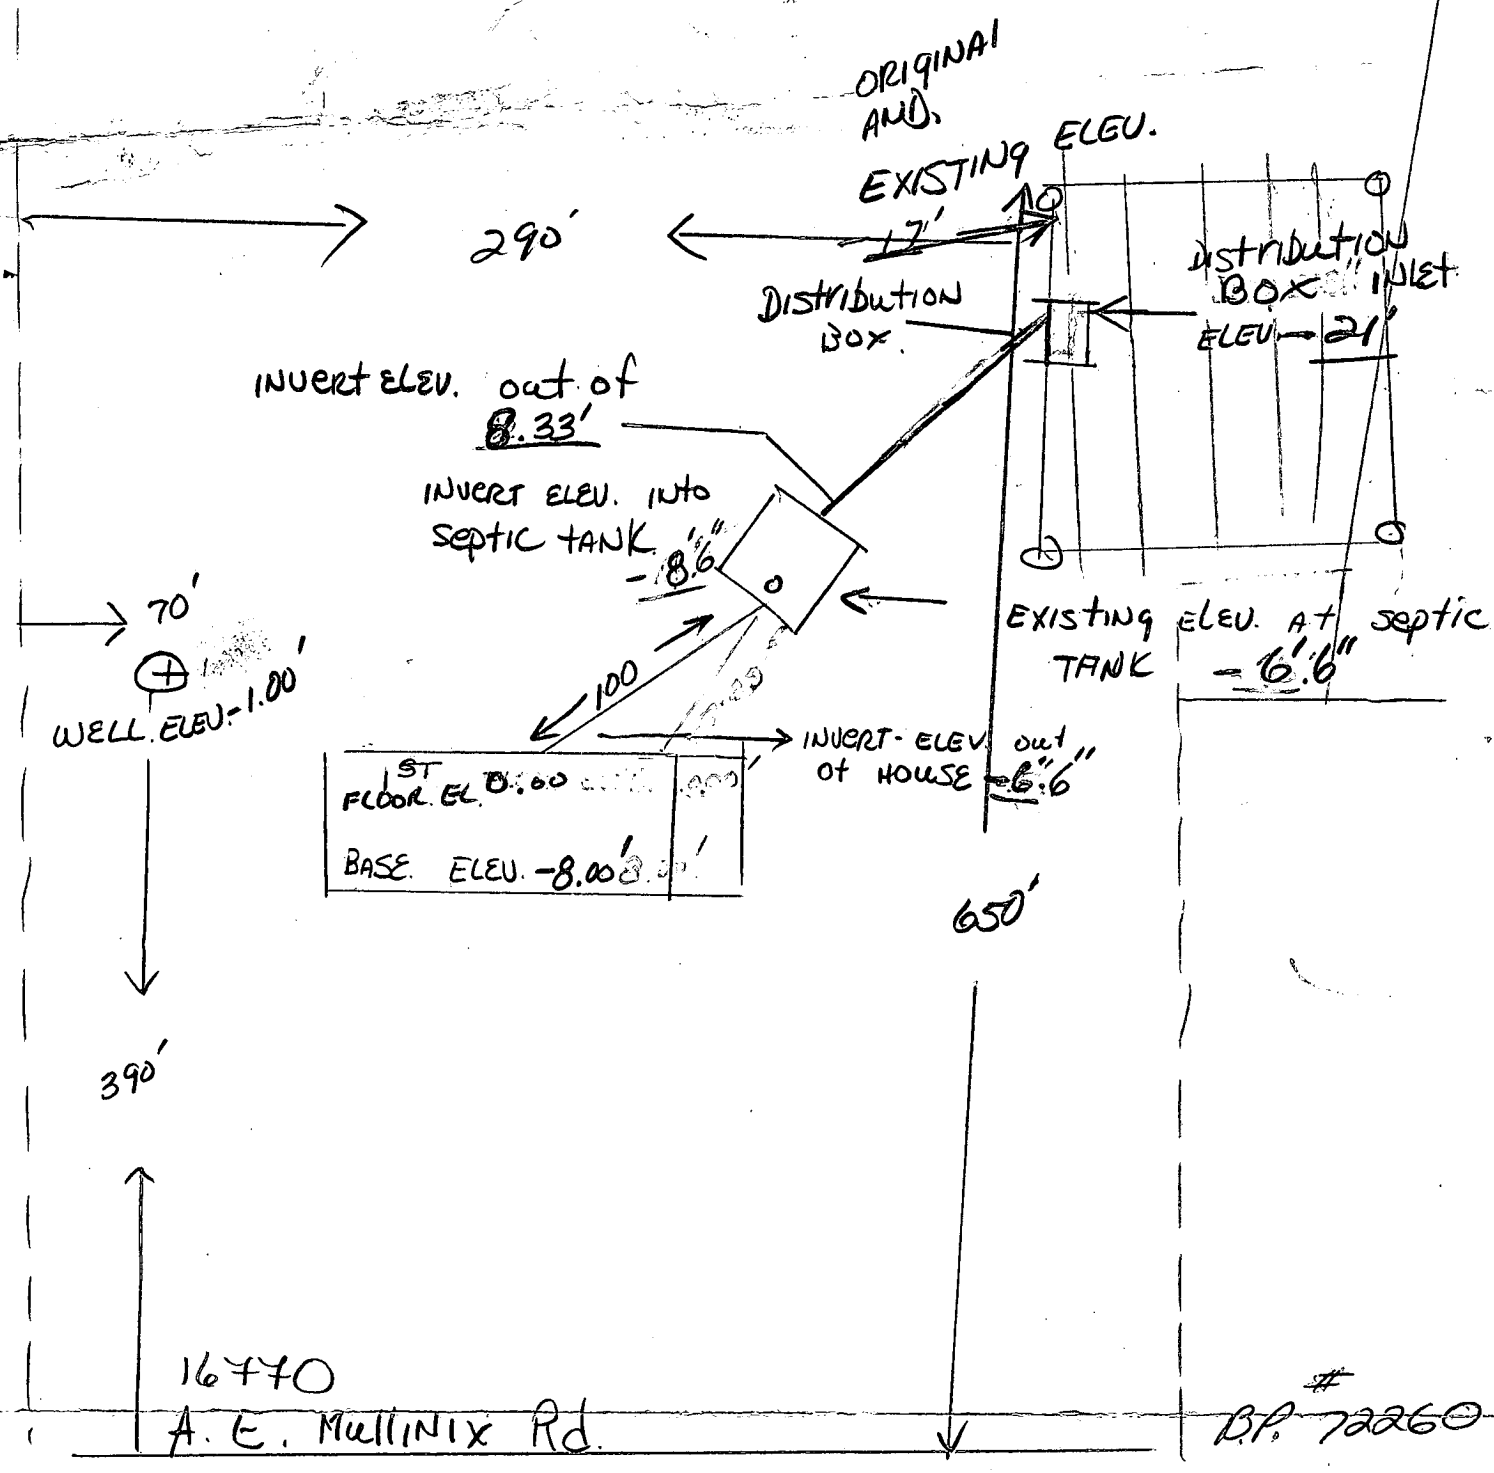 ORIGINAL
AND.
EXISTING ELEV.
17'
290'
Distribution
BOX.
Distribution
BOX INLET
ELEV - 21'
INVERT ELEV. out of
8.33'
INVERT ELEV. INto
Septic TANK
- 8'.6"
70'
WELL. ELEV.-1.00'
EXISTING ELEV. At septic
TANK - 6'.6"
100
INVERT- ELEV. out
Of HOUSE -6".6"
1ST
FLOOR. EL. 0.00
BASE. ELEV. -8.00'
650'
390'
16770
A. E. MullINIX Rd.
#
B.P. 72260